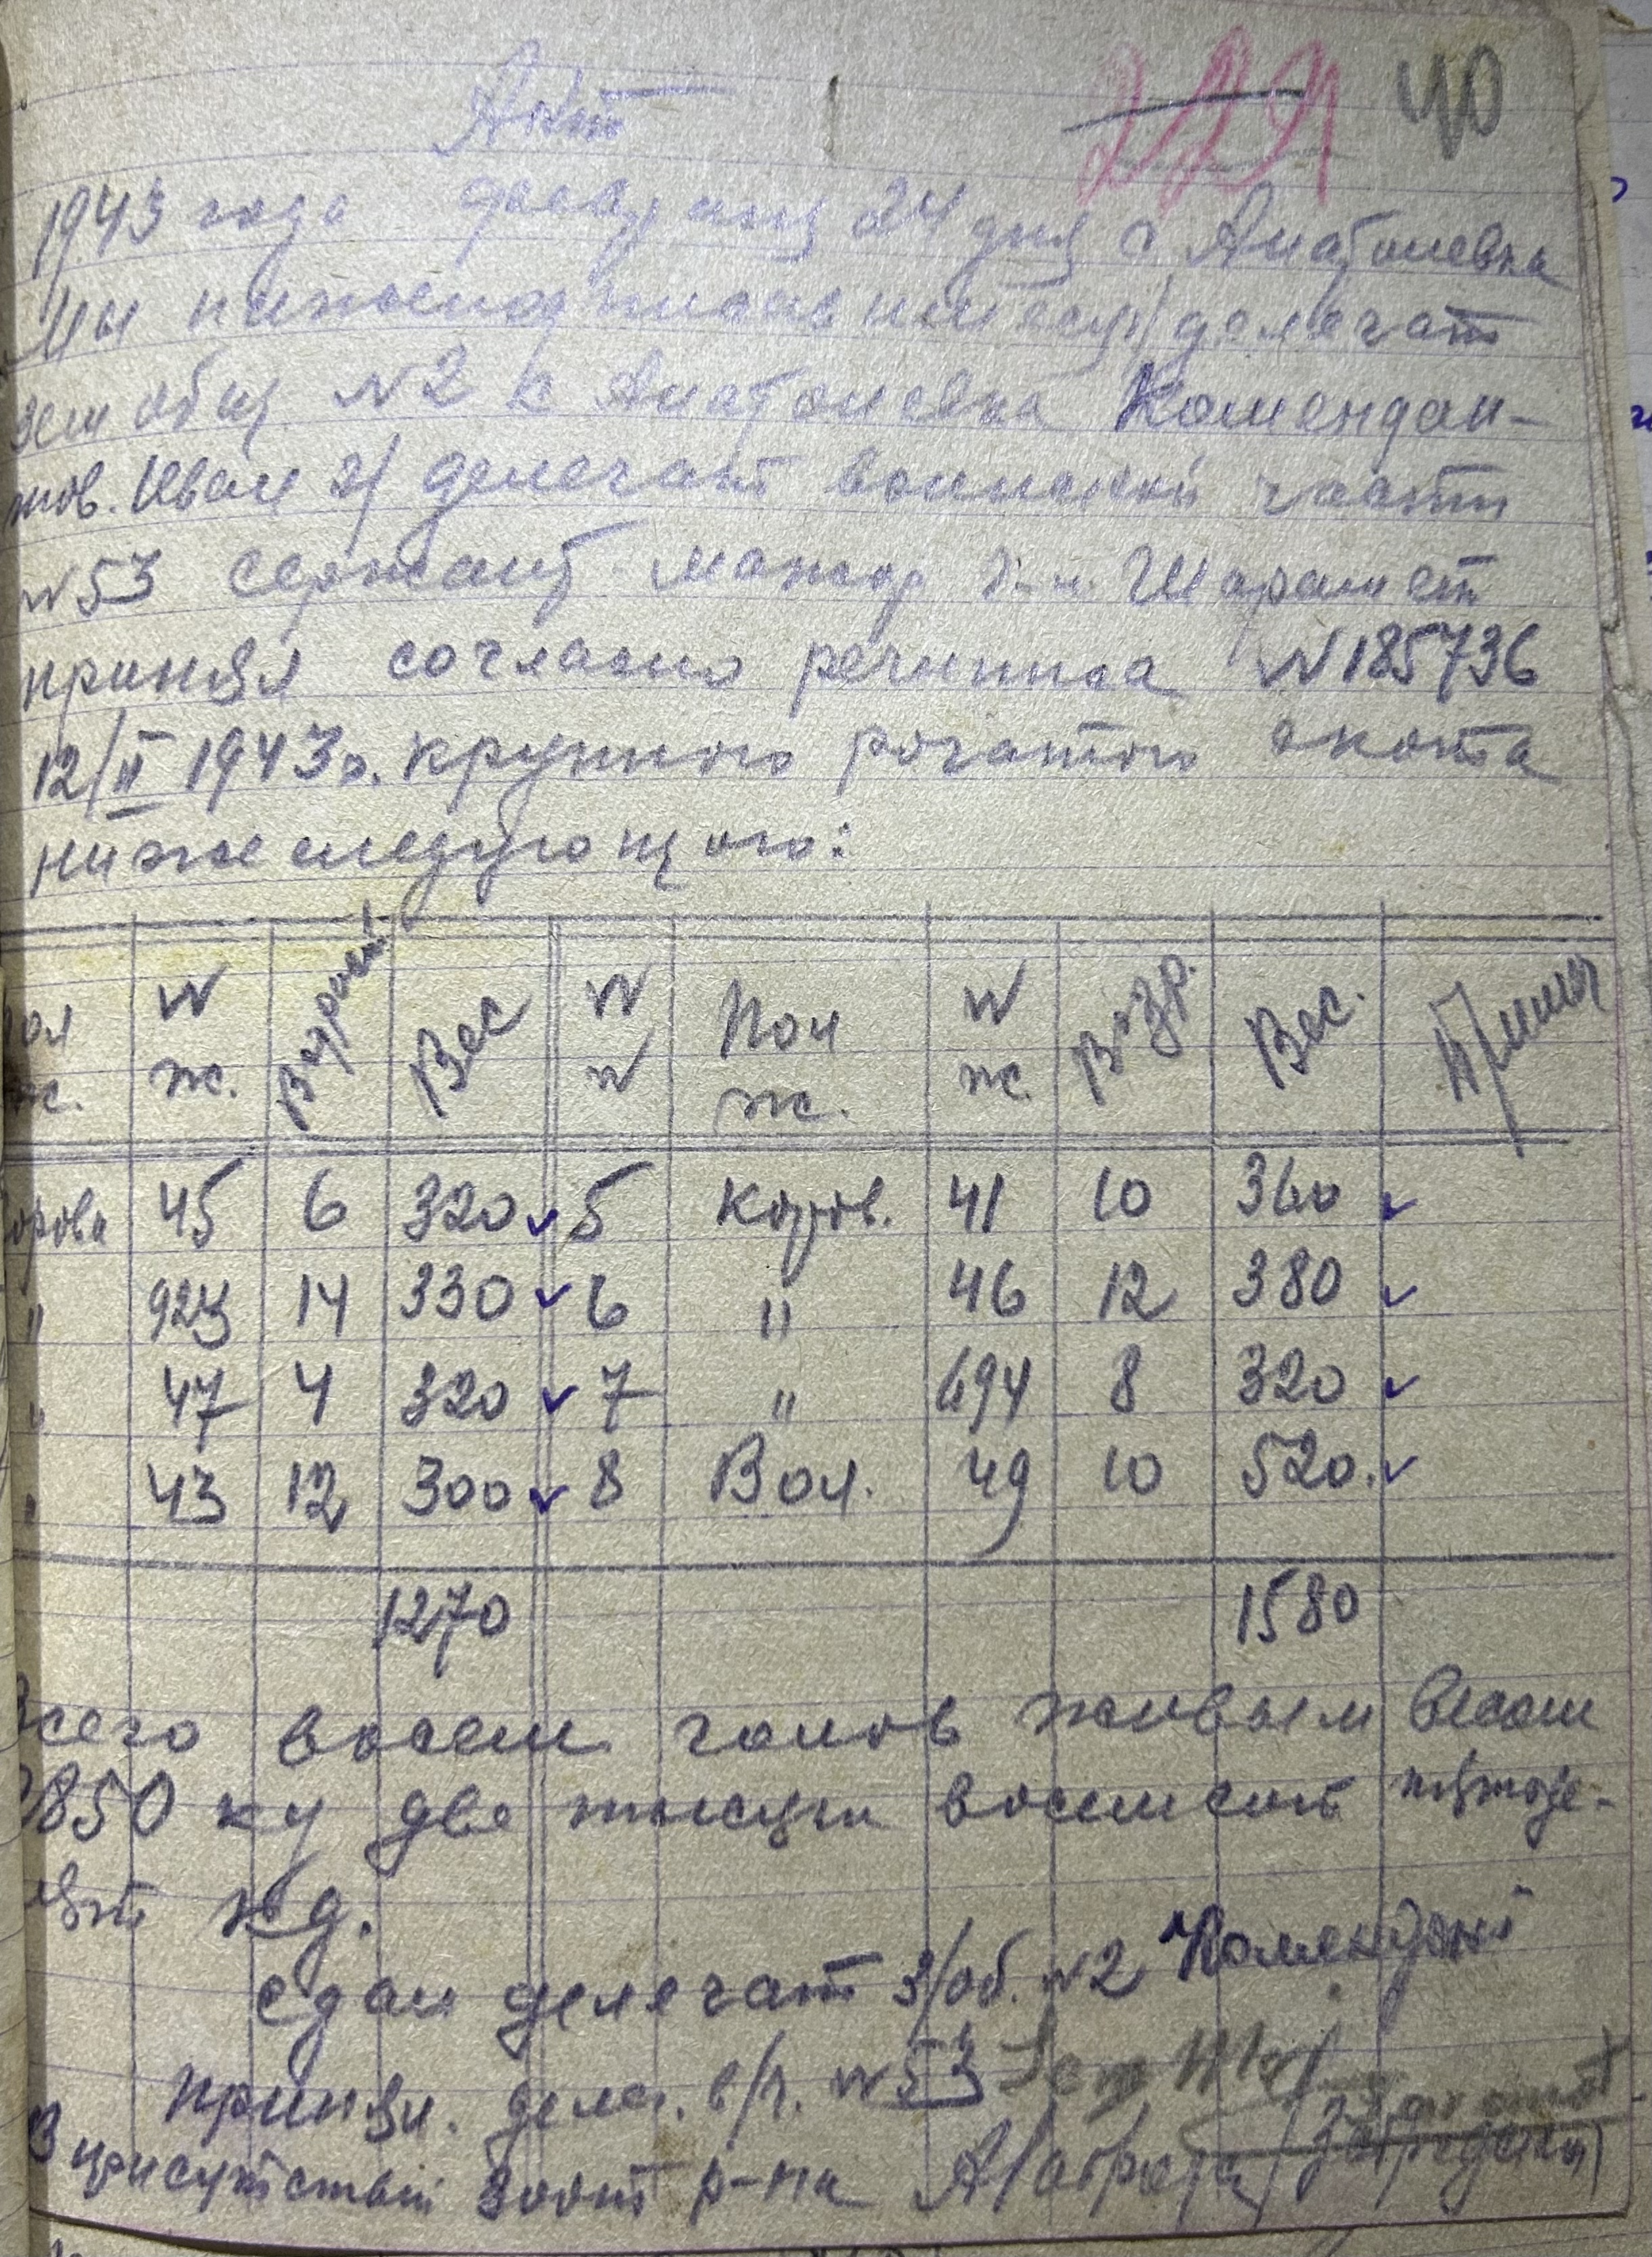 Акт
221 40
1943 года февраля 24 дня с Анатольевка
Мы нижеподписавшиеся/делегат
зем общ №2 с Анатольевка Комендан-
тов. Иван и/делегат воинской части
№53 сержант-мажор
принял согласно речиписа №185736
12/II 1943г. крупного рогатого скота
нижеследующого:
ол ж. | № ж. | Возраст | Вес | № № | Пол ж. | № ж. | Возр. | Вес. | Прим
орова 45 6 320 ✓ 5 Коров. 41 10 360 ✓
" 923 14 330 ✓ 6 " 46 12 380 ✓
" 47 4 320 ✓ 7 " 694 8 320 ✓
" 43 12 300 ✓ 8 Вол. 49 10 520. ✓
1270 1580
сего восем голов живым весом
850 кг две тысячи восемсот пятьде-
сят кг.
сдал делегат з/об. №2
принял. делег. в/ч. №53
В присутствии зоот р-на